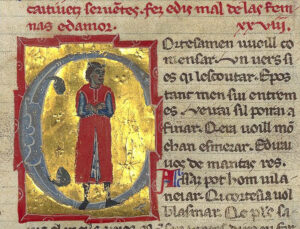 catiuen seruentes. fez edis mal de las fem
nas edamor. xxviij.
Cortesamen uueill co
mensar. un vers si
es qi lescoutar. Epos
tant men sui entrem
es. veirai sil porrai a
finar. Qera voill mo
chan esmerar. Edirai
uos de mantas res.
Assaz pot hom uila
neiar. Qi cortesia uol
blasmar.